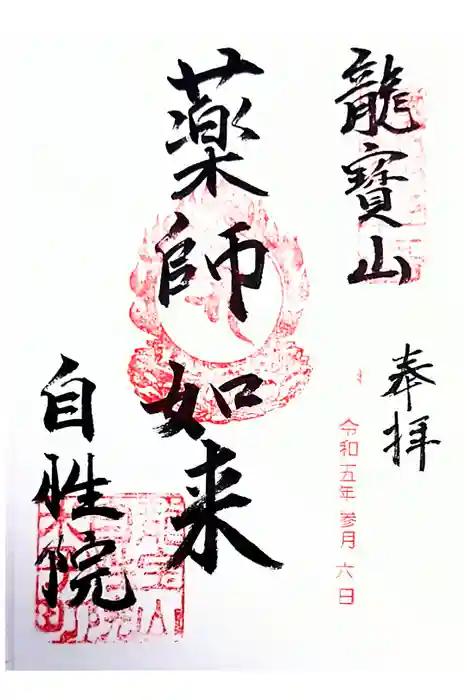 龍寳山
奉拝
令和五年 参月 六日
薬師如来
自性院